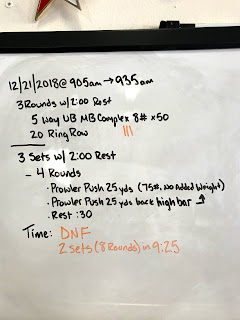 12/21/2018 @ 905am → 935am
3 Rounds w/ 2:00 Rest
5 way UB MB Complex 8# x50
20 Ring Row
3 Sets w/ 2:00 Rest
- 4 Rounds
· Prowler Push 25 yds (75#, No Added Weight)
· Prowler Push 25 yds back high bar
· Rest :30
Time: DNF
2 sets (8 Rounds) in 9:25